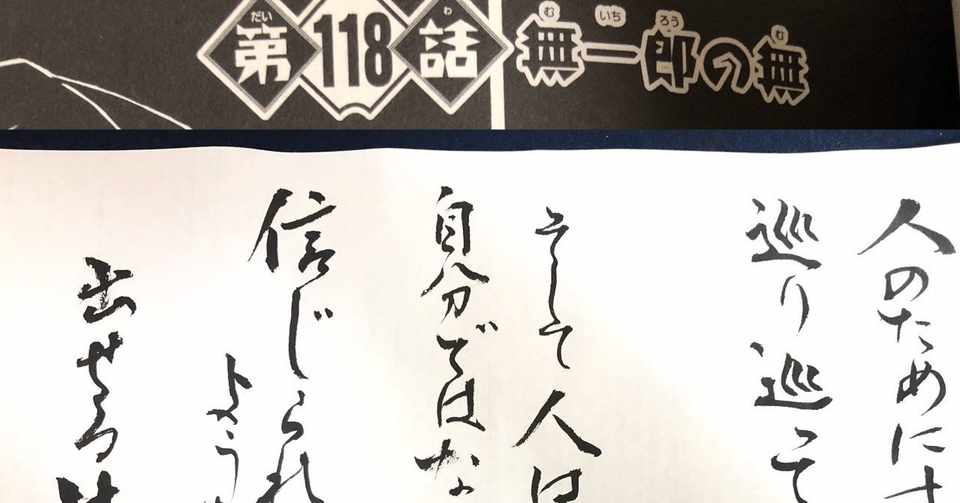 だい わ
第118話
む いち ろう む
無一郎の無
人のためにす
巡り巡って
そして人は
自分ではな
信じられ
出せる